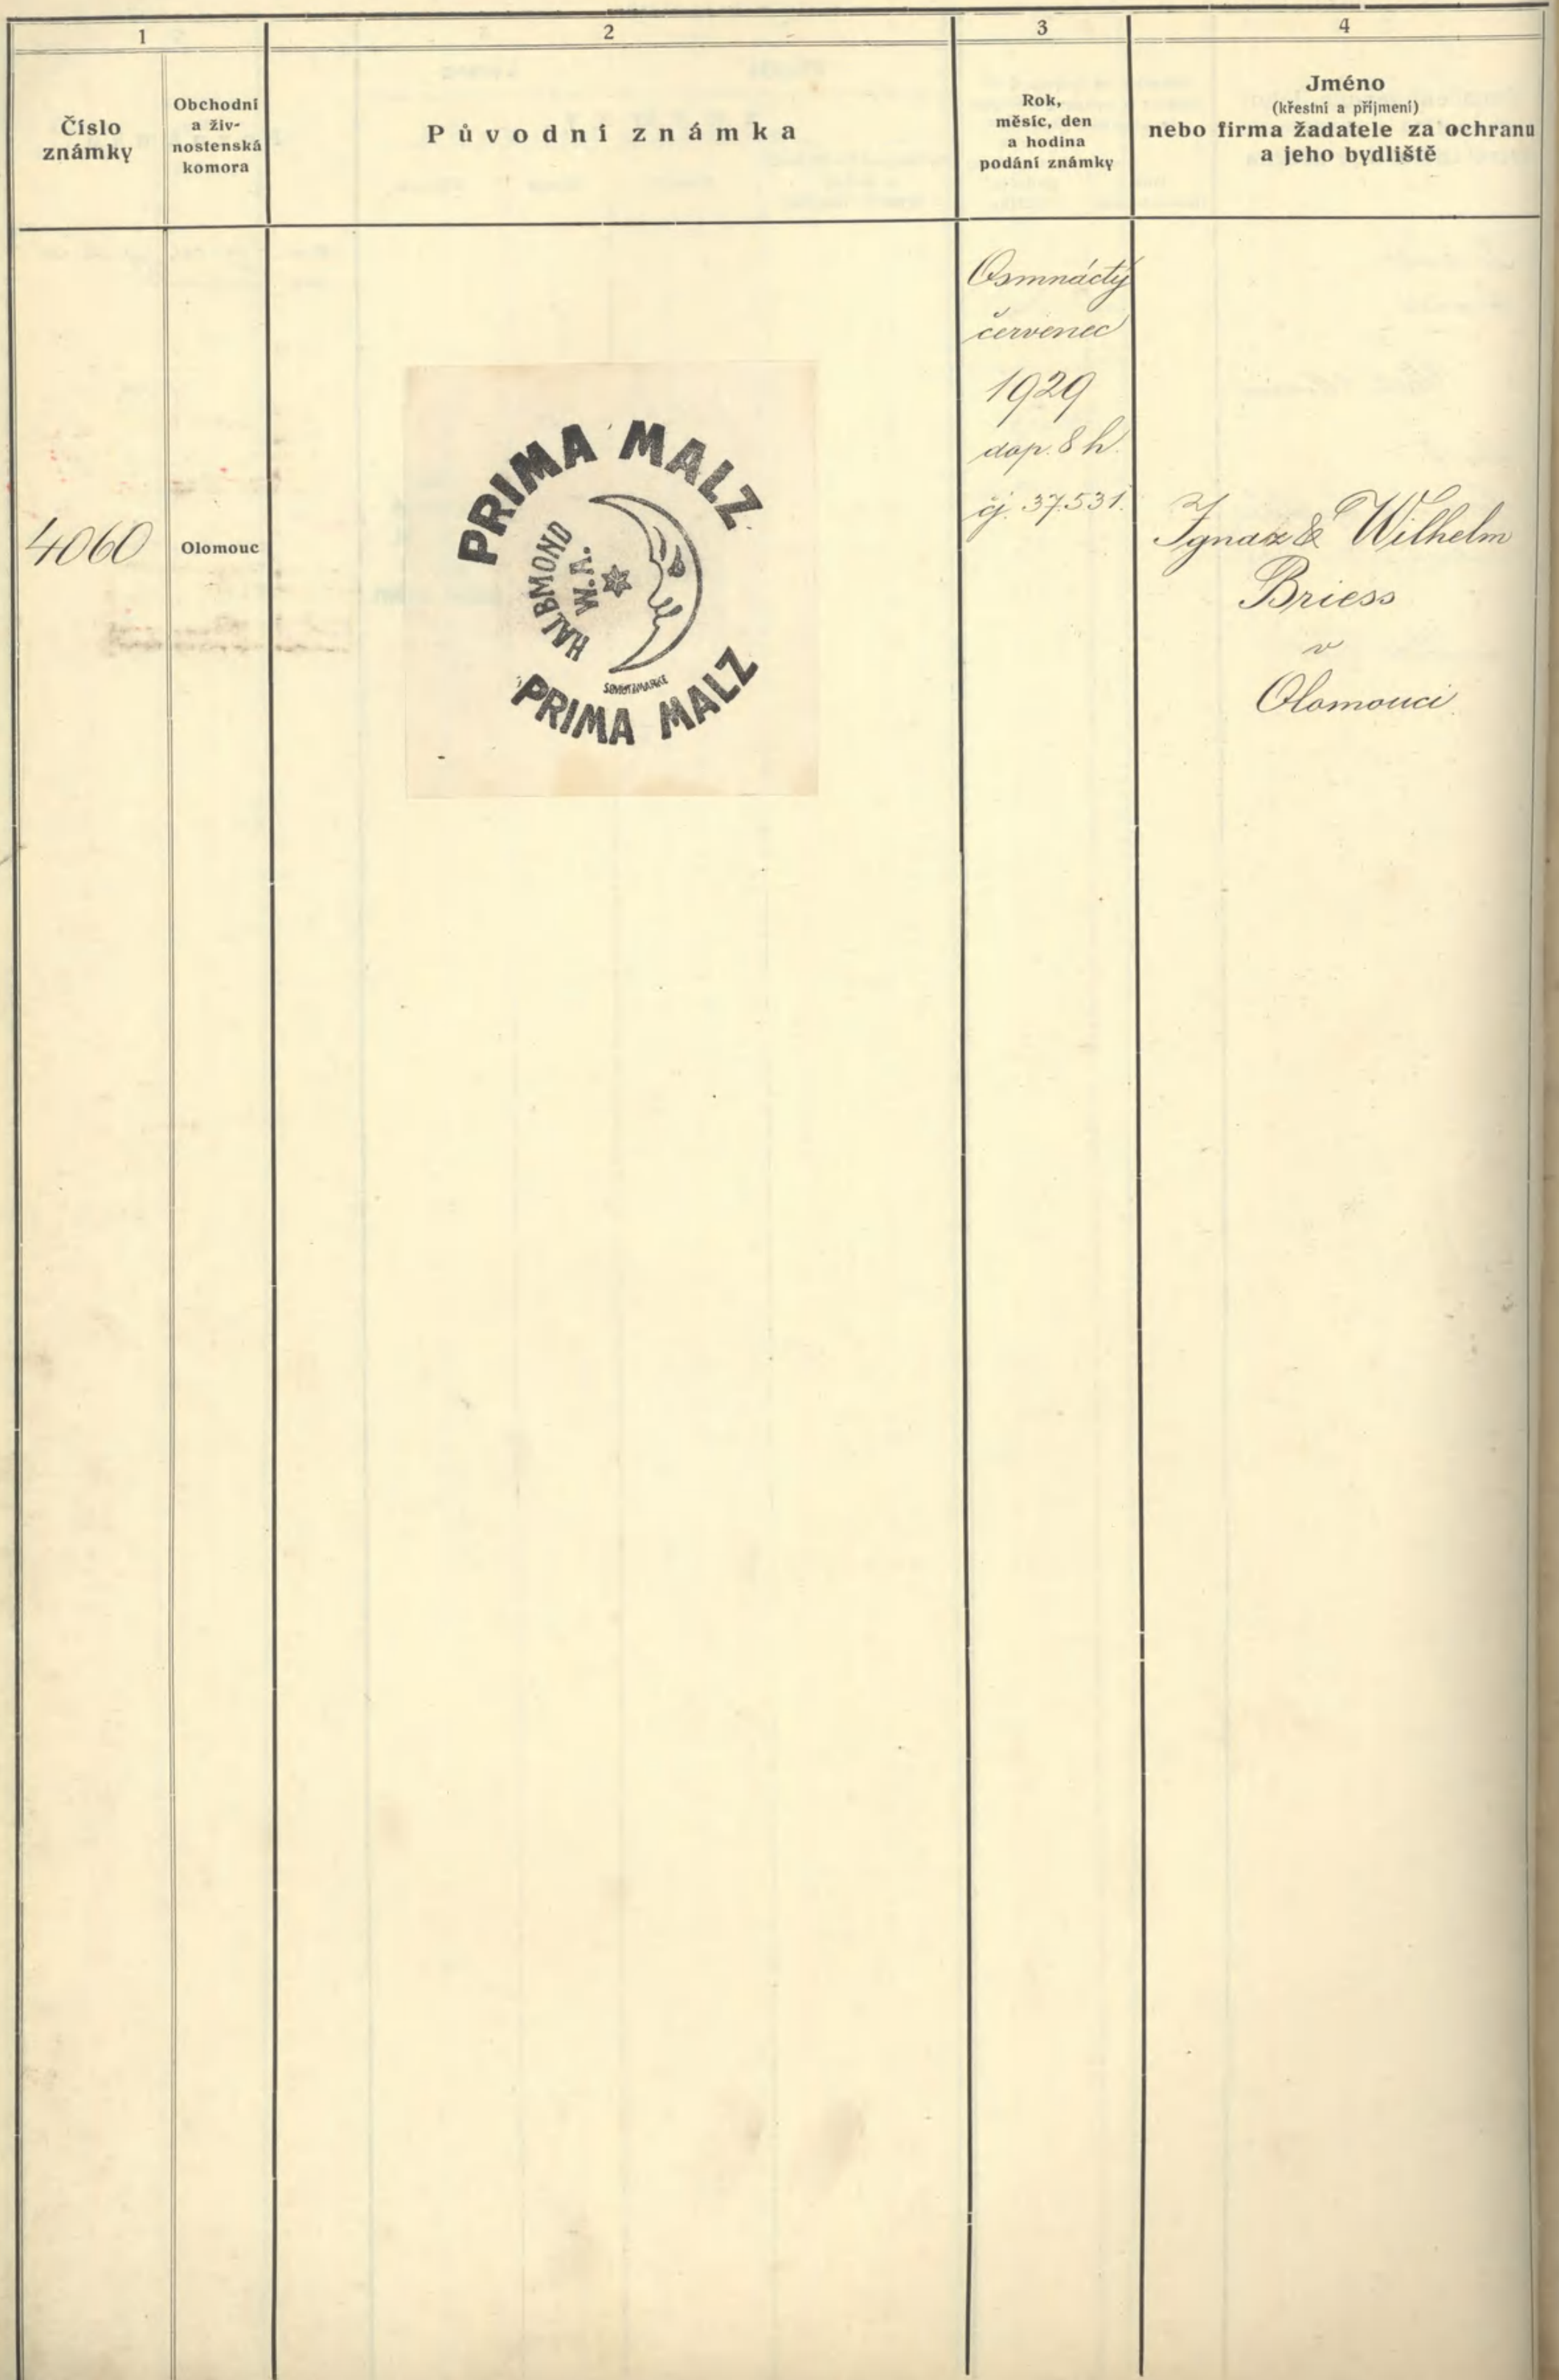 1
2
3
4
Číslo
známky
Obchodní
a živ-
nostenská
komora
Původní známka
Rok,
měsíc, den
a hodina
podání známky
Jméno
(křestní a příjmení)
nebo firma žadatele za ochranu
a jeho bydliště
4060
Olomouc
PRIMA MALZ
HALBMOND
W.A.
SCHUTZMARKE
PRIMA MALZ
Osmnáctý
červenec
1929
dop. 8 h.
čj. 37.531.
Ignaz & Wilhelm
Briess
v
Olomouci